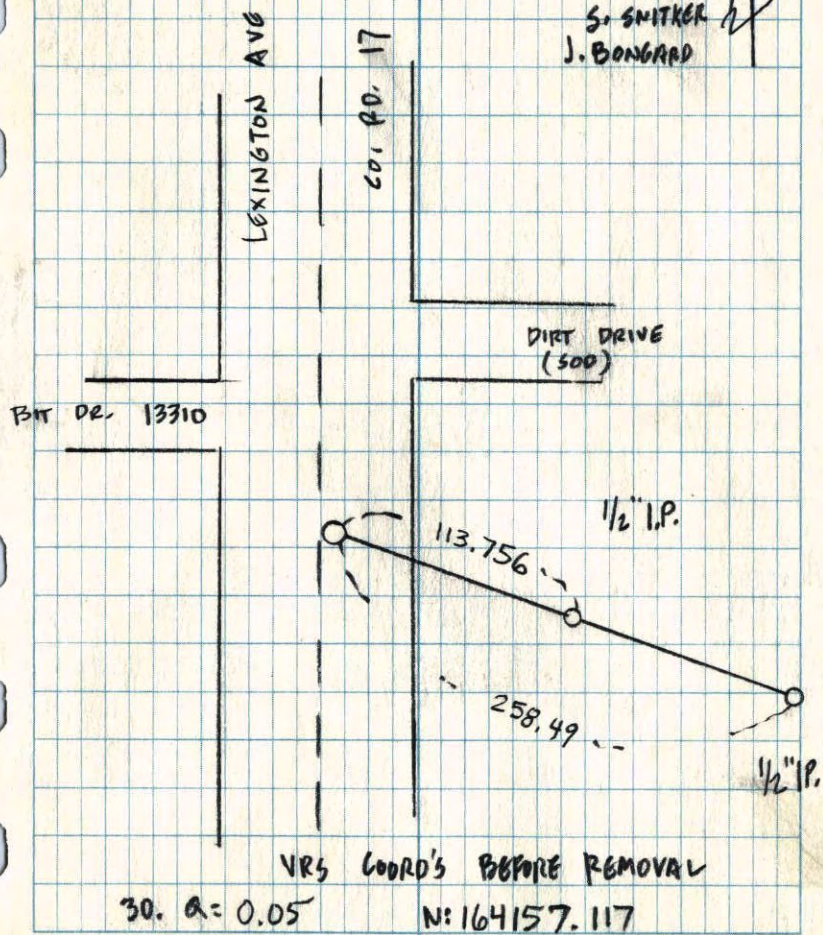 S. SNITKER
J. BONGARD
LEXINGTON AVE
CO. RD. 17
DIRT DRIVE
(SOD)
BIT DR. 13310
1/2" I.P.
113.756
258.49
1/2" I.P.
VRS COORD'S BEFORE REMOVAL
N: 164157.117